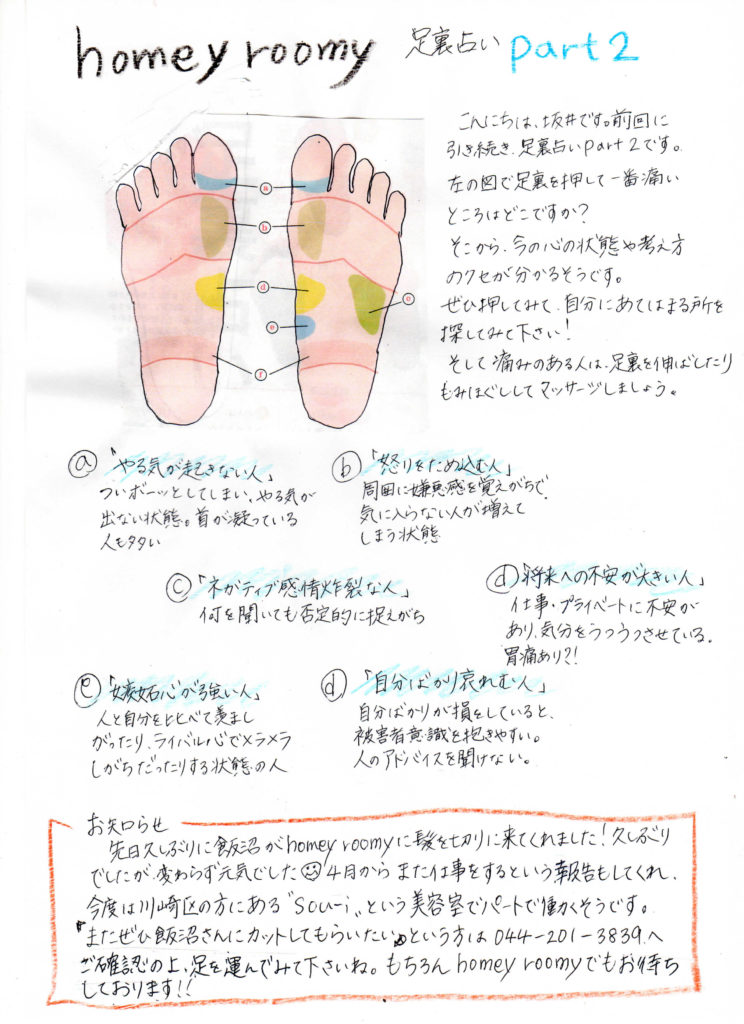 homey roomy 足裏占い part 2
こんにちは、坂井です。前回に
引き続き、足裏占いpart 2です。
左の図で足裏を押して一番痛い
ところはどこですか?
そこから、今の心の状態や考え方
のクセが分かるそうです。
ぜひ押してみて、自分にあてはまる所を
探してみて下さい!
そして痛みのある人は、足裏を伸ばしたり
もみほぐししてマッサージしましょう。
a
b
d
c
e
f
ⓐ「やる気が起きない人」
ついボーッとしてしまい、やる気が
出ない状態。首が凝っている
人も多い
ⓑ「怒りをため込む人」
周囲に嫌悪感を覚えがちで、
気に入らない人が増えて
しまう状態
ⓒ「ネガティブ感情炸裂な人」
何を聞いても否定的に捉えがち
ⓓ「将来への不安が大きい人」
仕事・プライベートに不安が
あり、気分をうつうつさせている。
胃痛あり?!
ⓔ「嫉妬心が強い人」
人と自分を比べて羨まし
がったり、ライバル心でメラメラ
しがちだったりする状態の人
ⓓ「自分ばかり哀れむ人」
自分ばかりが損をしていると、
被害者意識を抱きやすい。
人のアドバイスを聞けない。
お知らせ
先日久しぶりに飯沼がhomey roomyに髪を切りに来てくれました!久しぶり
でしたが、変わらず元気でした☺4月からまた仕事をするという報告もしてくれ、
今度は川崎区の方にある"Sou-i"という美容室でパートで働くそうです。
"またぜひ飯沼さんにカットしてもらいたい"という方は044-201-3839へ
ご確認の上、足を運んでみて下さいね。もちろんhomey roomyでもお待ち
しております!!